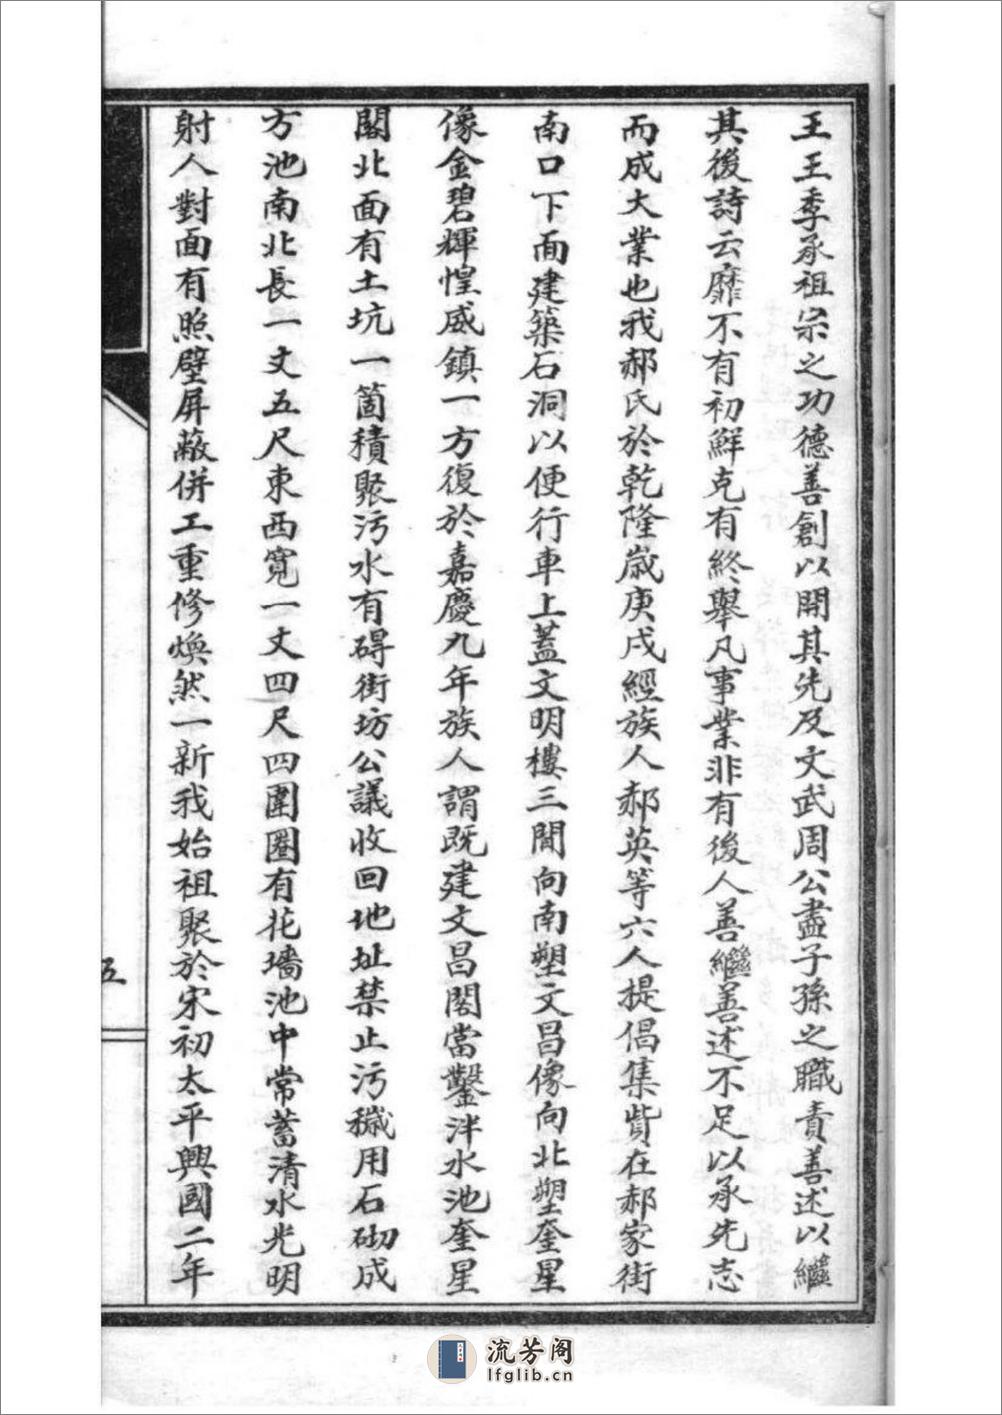 王王季承祖宗之功德善創以開其先及文武周公盡子孫之職責善述以繼
其後詩云靡不有初鮮克有終舉凡事業非有後人善繼善述不足以承先志
而成大業也我郝氏於乾隆歲庚戌經族人郝英等六人提倡集貲在郝家街
南口下面建築石洞以便行車上蓋文明樓三間向南塑文昌像向北塑奎星
像金碧輝惶威鎮一方復於嘉慶九年族人謂既建文昌閣當鑿泮水池奎星
閣北面有土坑一箇積聚污水有碍街坊公議收回地址禁止污穢用石砌成
方池南北長一丈五尺東西寬一丈四尺四圍圈有花墻池中常蓄清水光明
射人對面有照壁屏蔽併工重修煥然一新我始祖聚於宋初太平興國二年
五
流芳阁
lfglib.cn